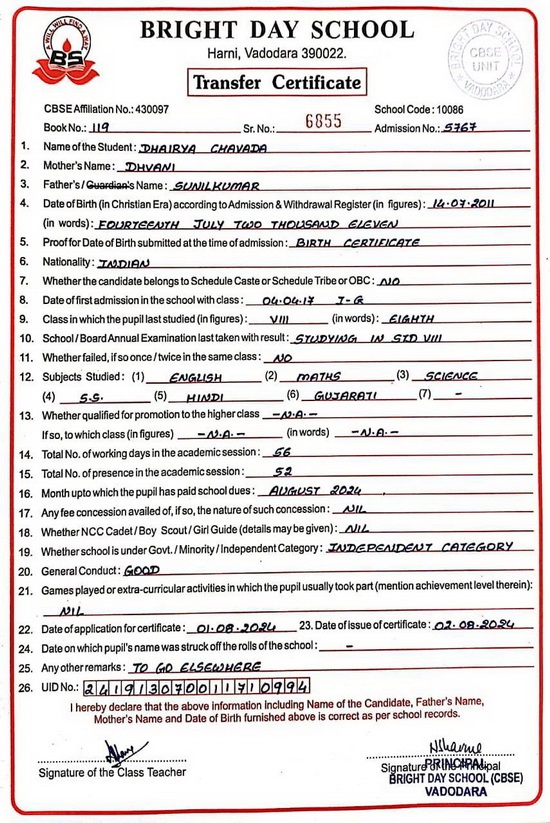 A WILL WILL FIND A WAY
BS
BRIGHT DAY SCHOOL
Harni, Vadodara 390022.
BRIGHT DAY SCHOOL
CBSE
UNIT
VADODARA
Transfer Certificate
CBSE Affiliation No.: 430097 School Code : 10086
Book No.: 119 Sr. No.: 6855 Admission No.: 5767
1. Name of the Student : DHAIRYA CHAVADA
2. Mother's Name : DHVANI
3. Father's / Guardian's Name : SUNILKUMAR
4. Date of Birth (in Christian Era) according to Admission & Withdrawal Register (in figures) : 14.07.2011
(in words) : FOURTEENTH JULY TWO THOUSAND ELEVEN
5. Proof for Date of Birth submitted at the time of admission : BIRTH CERTIFICATE
6. Nationality : INDIAN
7. Whether the candidate belongs to Schedule Caste or Schedule Tribe or OBC : NO
8. Date of first admission in the school with class : 04.04.17 J-G
9. Class in which the pupil last studied (in figures) : VIII (in words) : EIGHTH
10. School / Board Annual Examination last taken with result : STUDYING IN STD VIII
11. Whether failed, if so once / twice in the same class : NO
12. Subjects Studied : (1) ENGLISH (2) MATHS (3) SCIENCE
(4) S.S. (5) HINDI (6) GUJARATI (7) -
13. Whether qualified for promotion to the higher class -N.A.-
If so, to which class (in figures) -N.A.- (in words) -N.A.-
14. Total No. of working days in the academic session : 56
15. Total No. of presence in the academic session : 52
16. Month upto which the pupil has paid school dues : AUGUST 2024
17. Any fee concession availed of, if so, the nature of such concession : NIL
18. Whether NCC Cadet / Boy Scout / Girl Guide (details may be given) : NIL
19. Whether school is under Govt. / Minority / Independent Category : INDEPENDENT CATEGORY
20. General Conduct : GOOD
21. Games played or extra-curricular activities in which the pupil usually took part (mention achievement level therein) :
NIL
22. Date of application for certificate : 01.08.2024 23. Date of issue of certificate : 02.08.2024
24. Date on which pupil's name was struck off the rolls of the school : -
25. Any other remarks : TO GO ELSEWHERE
26. UID No.: 241913070011710994
I hereby declare that the above information including Name of the Candidate, Father's Name,
Mother's Name and Date of Birth furnished above is correct as per school records.
Signature of the Class Teacher
Signature of the Principal
PRINCIPAL
BRIGHT DAY SCHOOL (CBSE)
VADODARA